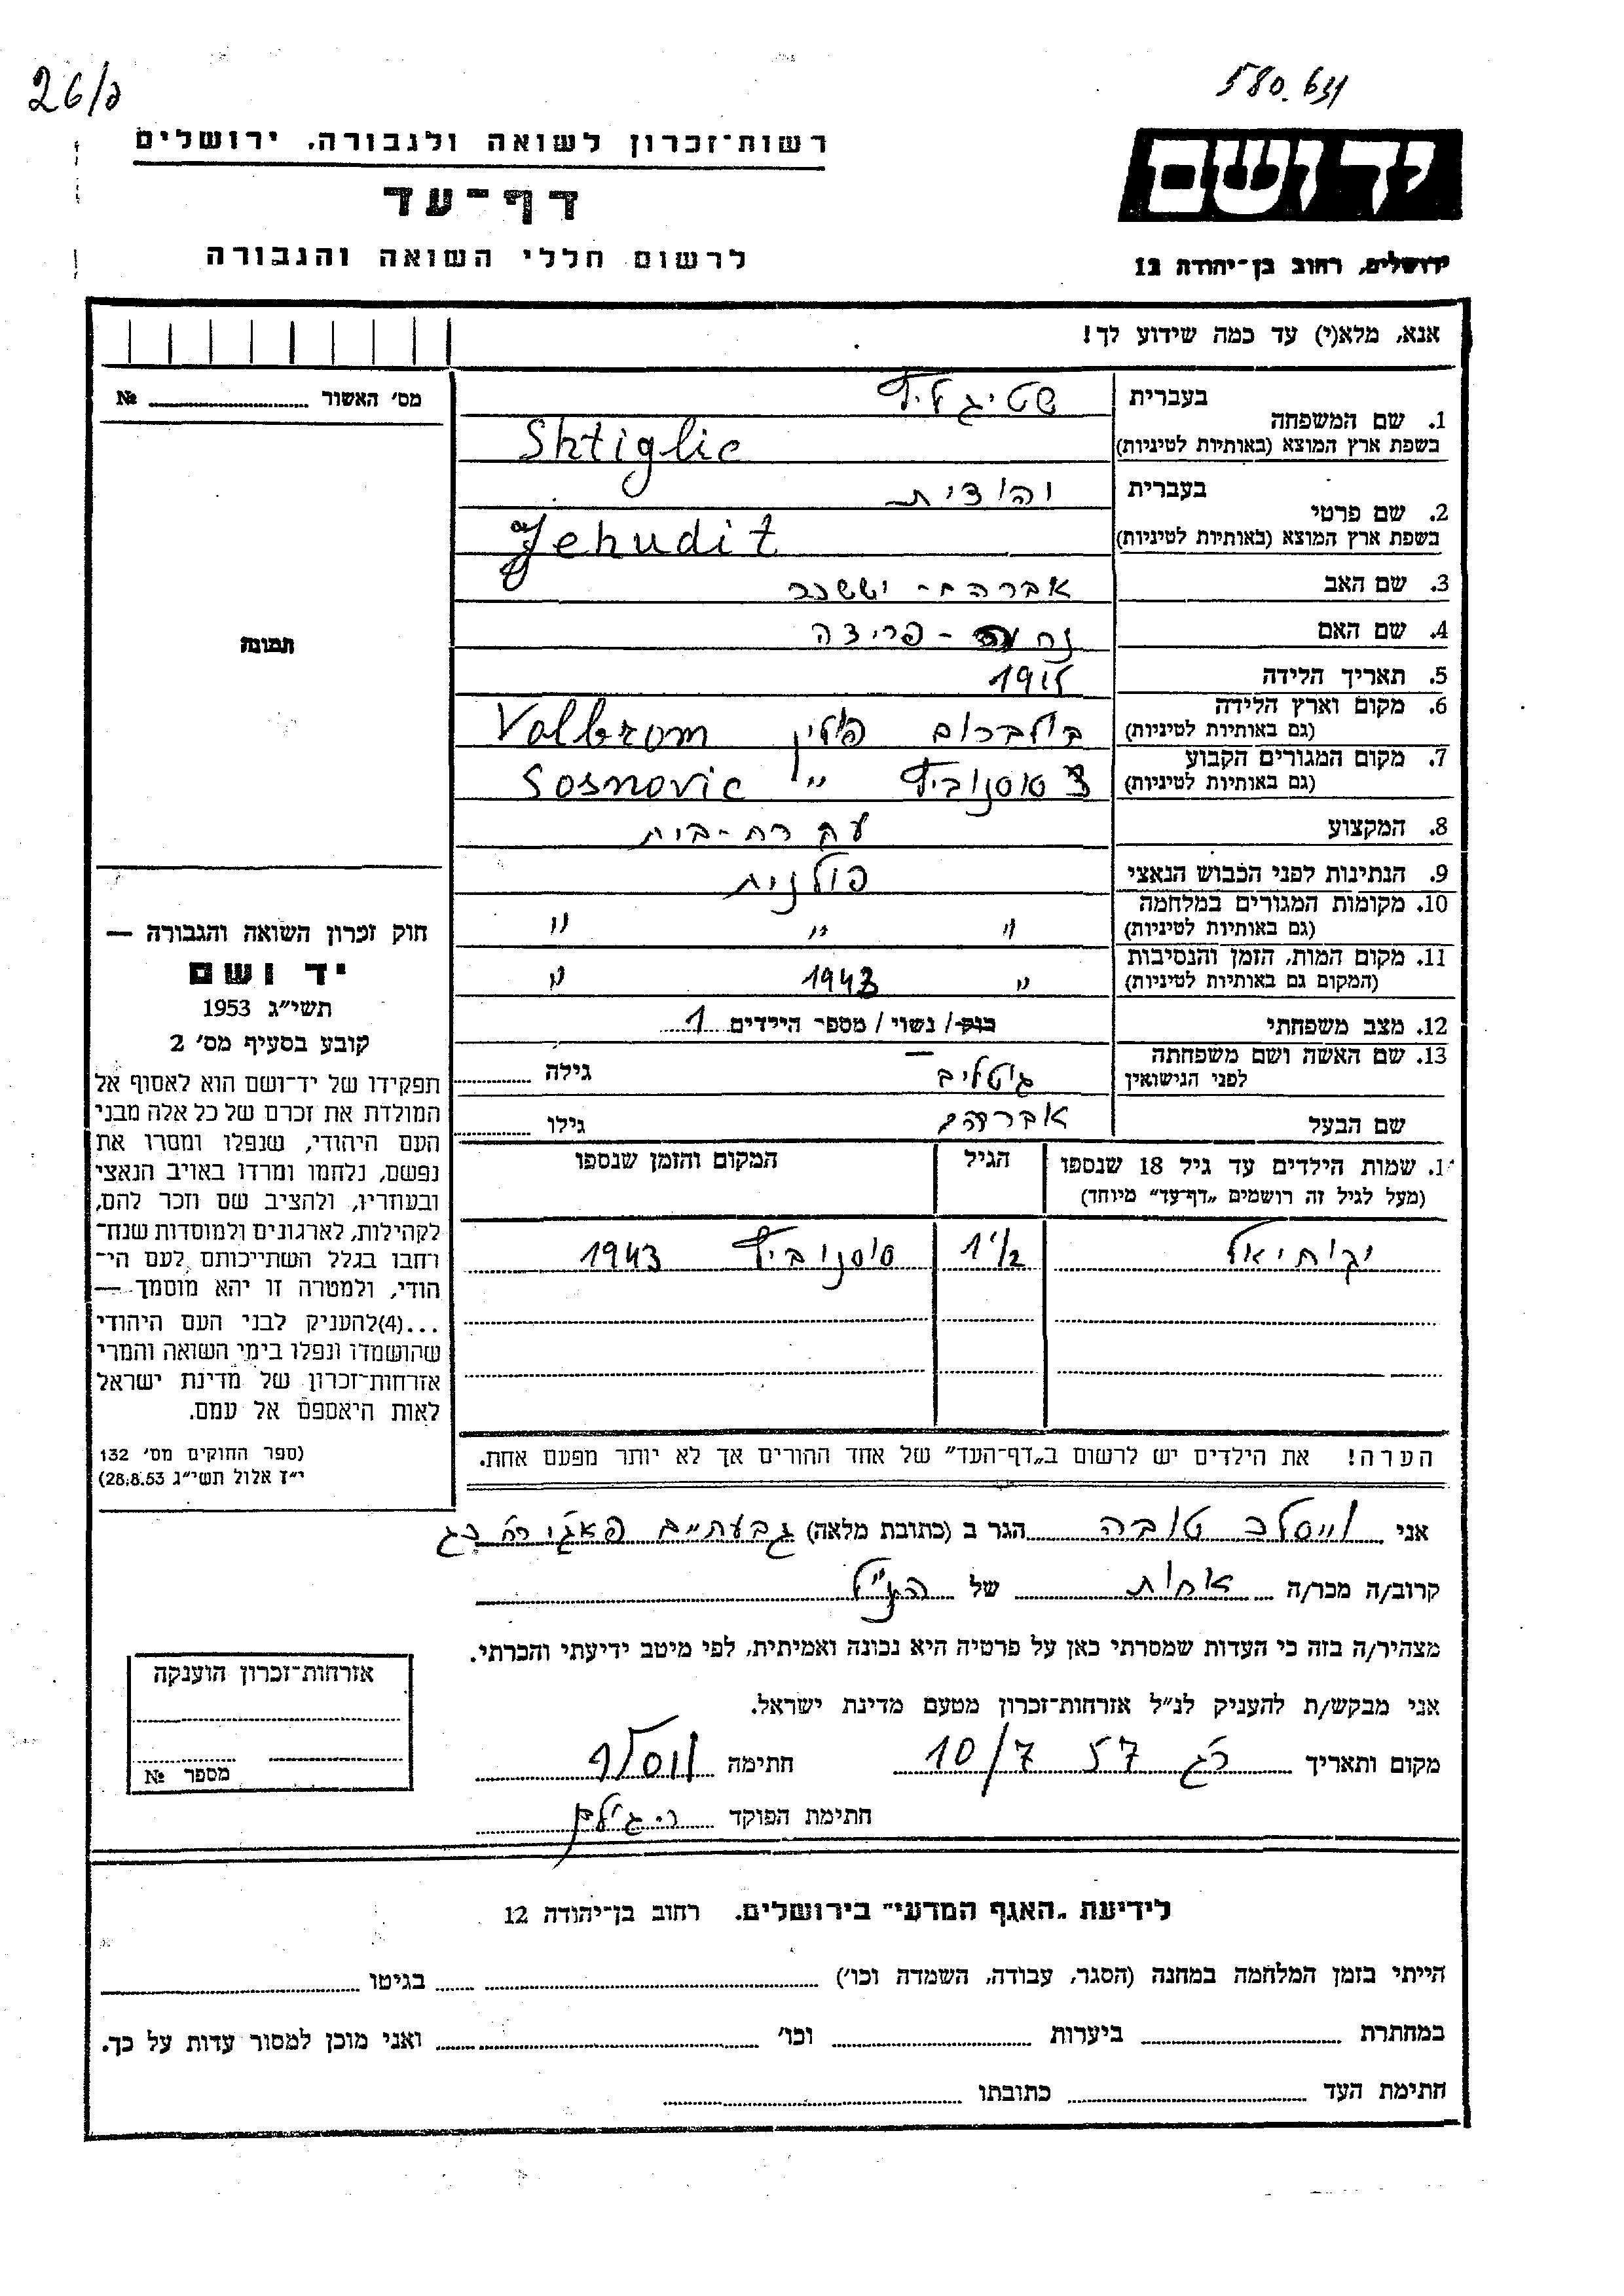 26/ג
580.631
רשות-זכרון לשואה ולגבורה, ירושלים
דף-עד
לרשום חללי השואה והגבורה
יד ושם
ירושלים, רחוב בן-יהודה 12
אנא, מלא(י) עד כמה שידוע לך!
מס' האשור № 
תמונה
1. שם המשפחה בעברית שטיגליץ
בשפת ארץ המוצא (באותיות לטיניות) Shtiglic
2. שם פרטי בעברית יהודית
בשפת ארץ המוצא (באותיות לטיניות) Jehudit
3. שם האב אברהם - יששכר
4. שם האם פרידה
5. תאריך הלידה
6. מקום וארץ הלידה וולברום פולין Volbrom
(גם באותיות לטיניות)
7. מקום המגורים הקבוע סוסנוביץ " Sosnovic
(גם באותיות לטיניות)
8. המקצוע עקרת-בית
9. הנתינות לפני הכבוש הנאצי פולנית
10. מקומות המגורים במלחמה " " "
(גם באותיות לטיניות)
11. מקום המות, הזמן והנסיבות " 1943 "
(המקום גם באותיות לטיניות)
12. מצב משפחתי רווק / נשוי / מספר הילדים 1
13. שם האשה ושם משפחתה גוטליב גילה
לפני הנישואין
שם הבעל אברהם גילו
שמות הילדים עד גיל 18 שנספו הגיל המקום והזמן שנספו
(מעל לגיל זה רושמים "דף-עד" מיוחד)
יקותיאל 1 1/2 סוסנוביץ 1943
הערה! את הילדים יש לרשום ב"דף-העד" של אחד ההורים אך לא יותר מפעם אחת.
חוק זכרון השואה והגבורה —
יד ושם
תשי"ג 1953
קובע בסעיף מס' 2
תפקידו של יד-ושם הוא לאסוף אל
המולדת את זכרם של כל אלה מבני
העם היהודי, שנפלו ומסרו את
נפשם, נלחמו ומרדו באויב הנאצי
ובעוזריו, ולהציב שם וזכר להם,
לקהילות, לארגונים ולמוסדות שנח-
רחבו בגלל השתייכותם לעם הי-
הודי, ולמטרה זו יהא מוסמך —
...(4)להעניק לבני העם היהודי
שהושמדו ונפלו בימי השואה והמרי
אזרחות-זכרון של מדינת ישראל
לאות היאספם אל עמם.
(ספר החוקים מס' 132
י"ז אלול תשי"ג 28.8.53)
אני טובה הגר ב (כתובת מלאה) גבעתיים
קרוב/ה מכר/ה אחות של הנ"ל
מצהיר/ה בזה כי העדות שמסרתי כאן על פרטיה היא נכונה ואמיתית, לפי מיטב ידיעתי והכרתי.
אני מבקש/ת להעניק לנ"ל אזרחות-זכרון מטעם מדינת ישראל.
מקום ותאריך רג 10/7 57 חתימה
חתימת הפוקד
אזרחות-זכרון הוענקה
מספר №
לידיעת "האגף המדעי" בירושלים, רחוב בן-יהודה 12
הייתי בזמן המלחמה במחנה (הסגר, עבודה, השמדה וכו') בגיטו
במחתרת ביערות וכו' ואני מוכן למסור עדות על כך.
חתימת העד כתובתו